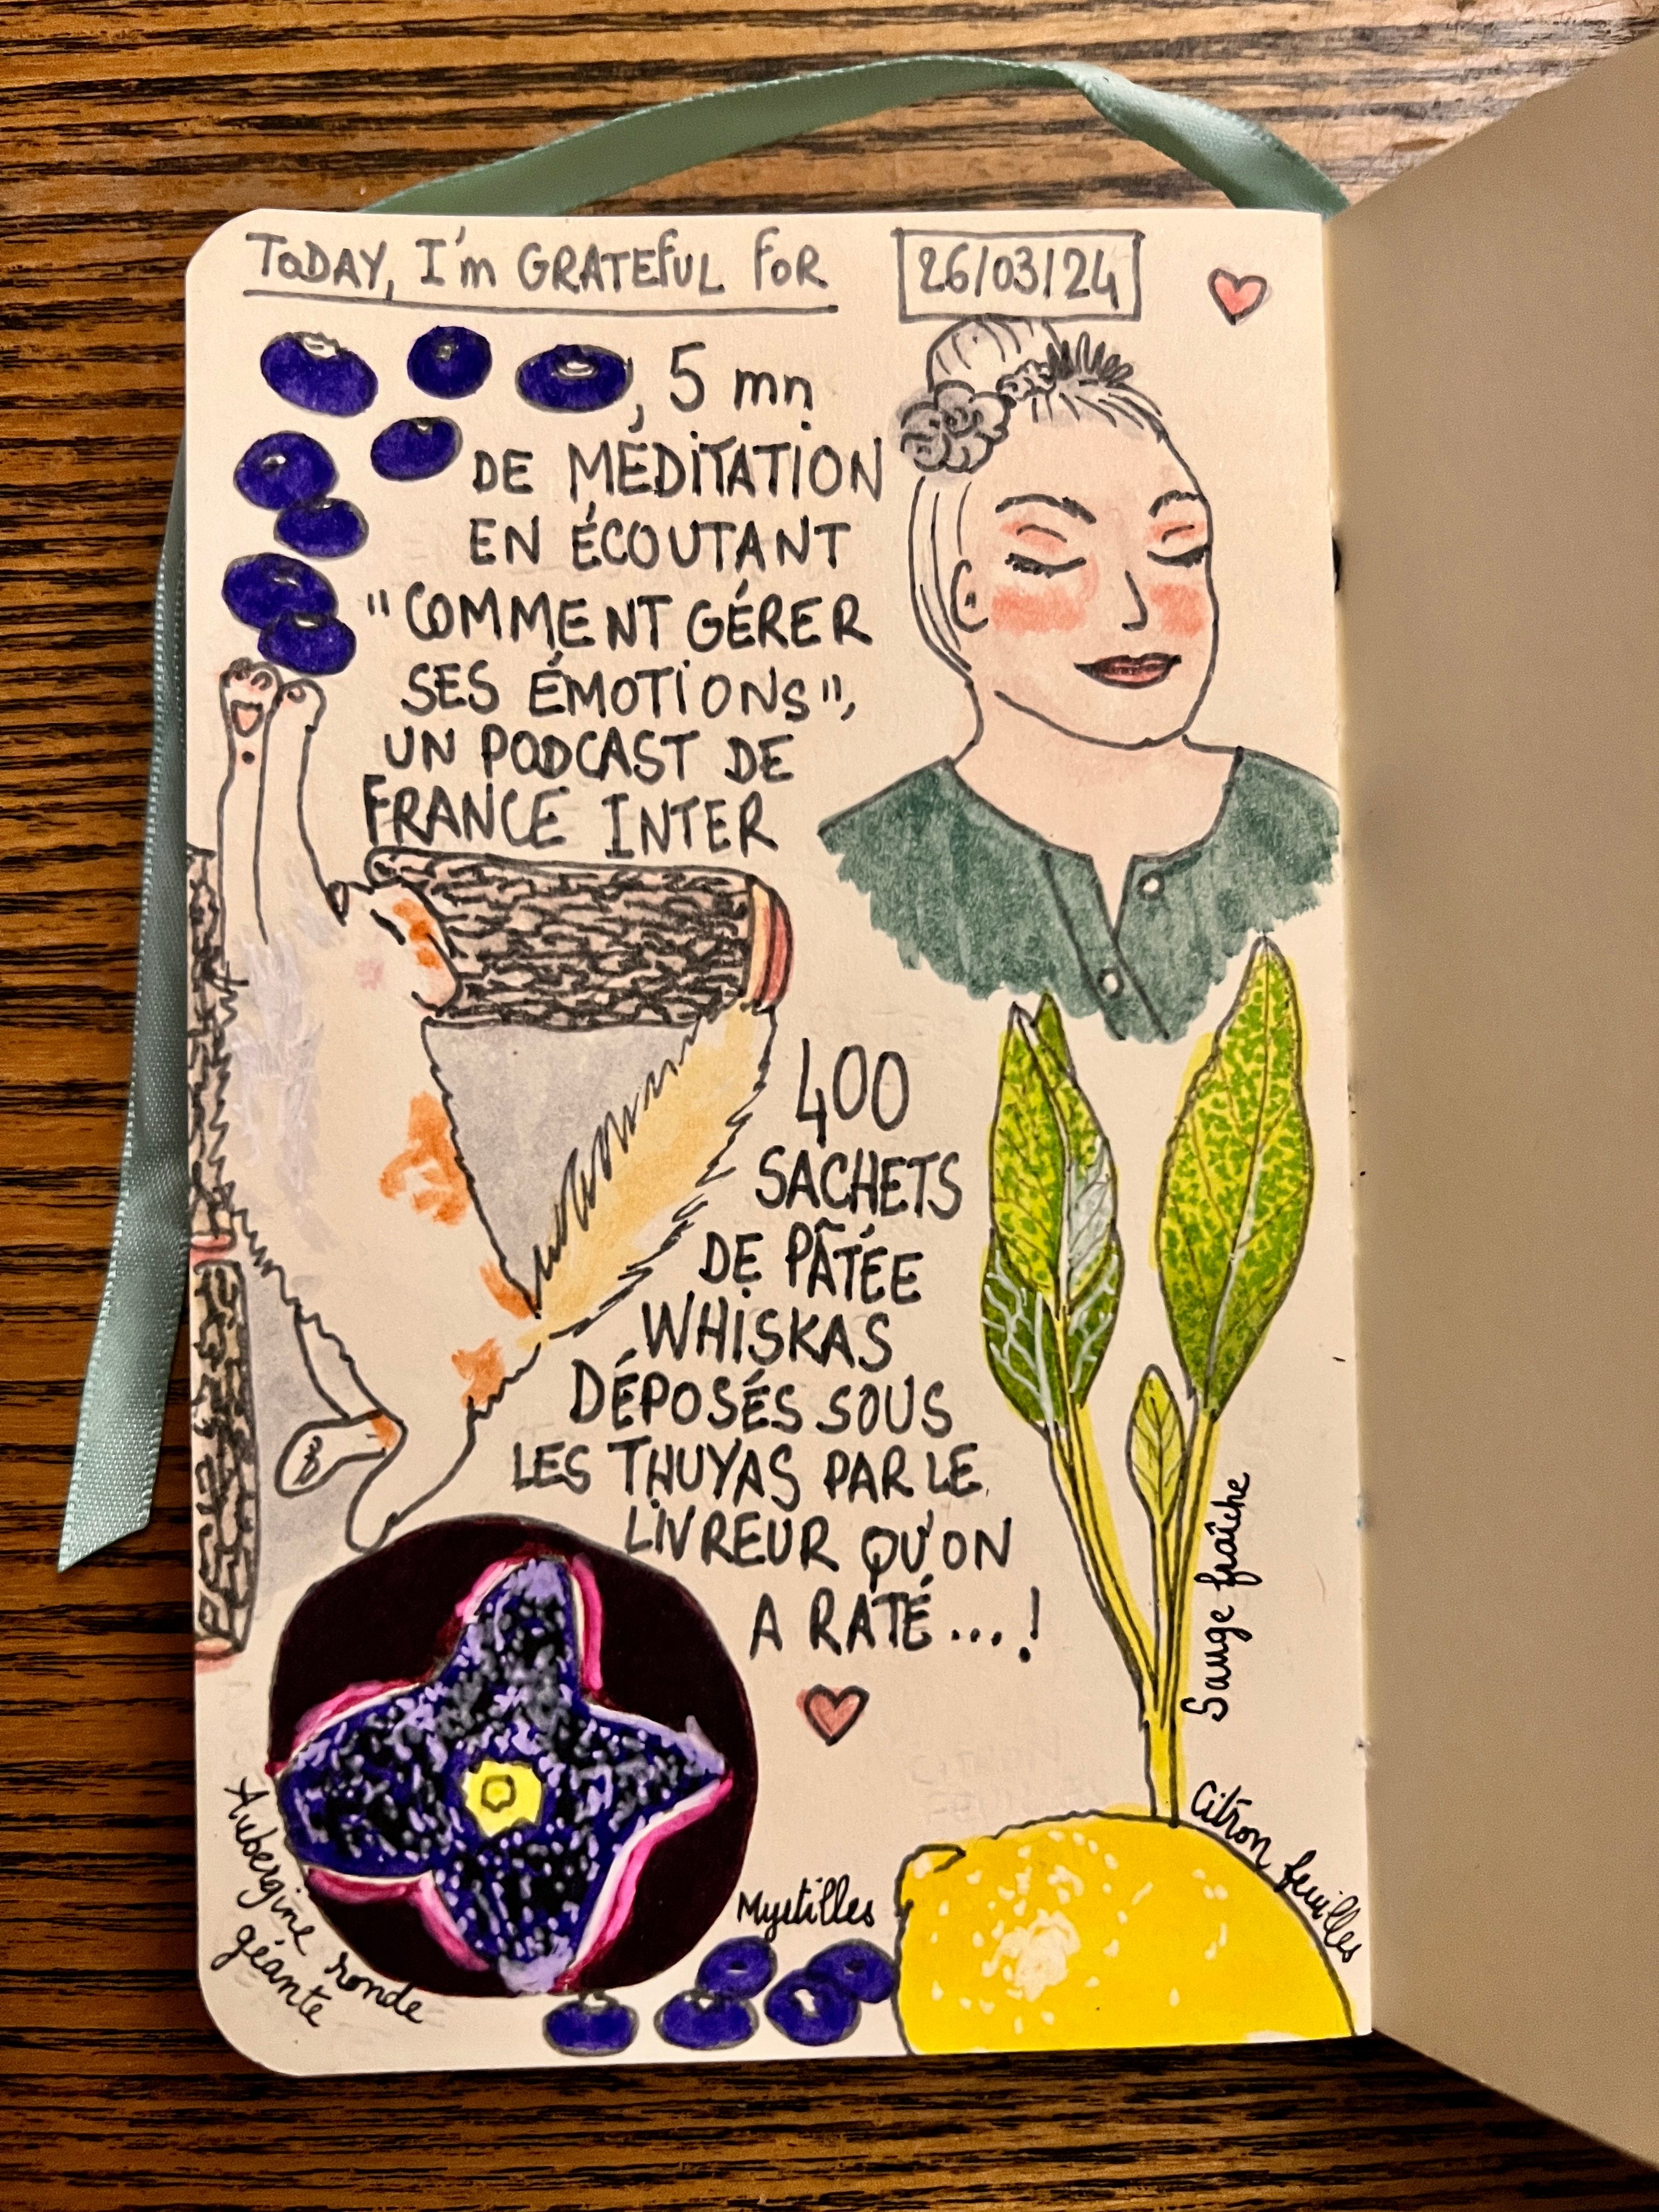 TODAY, I'm GRATEFUL FOR
26/03/24
, 5 mn
DE MÉDITATION
EN ÉCOUTANT
"COMMENT GÉRER
SES ÉMOTIONS",
UN PODCAST DE
FRANCE INTER
400
SACHETS
DE PÂTÉE
WHISKAS
DÉPOSÉS SOUS
LES THUYAS PAR LE
LIVREUR QU'ON
A RATÉ...!
Sauge fraîche
Citron feuilles
Myrtilles
Aubergine ronde
géante